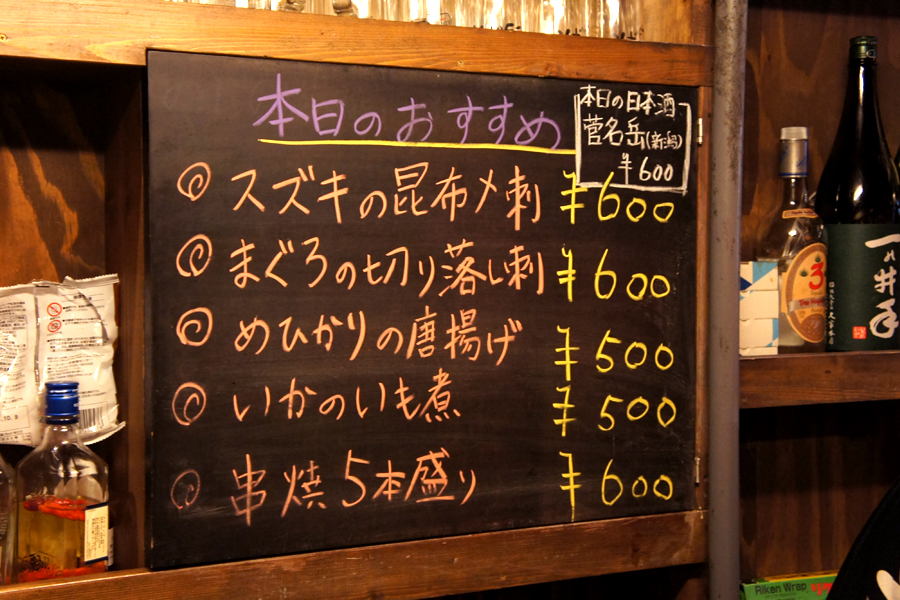 本日のおすすめ
本日の日本酒
菅名岳(新潟)
¥600
スズキの昆布〆刺 ¥600
まぐろの切り落し刺 ¥600
めひかりの唐揚げ ¥500
いかのいも煮 ¥500
串焼5本盛り ¥600
一の井手
Riken Wrap